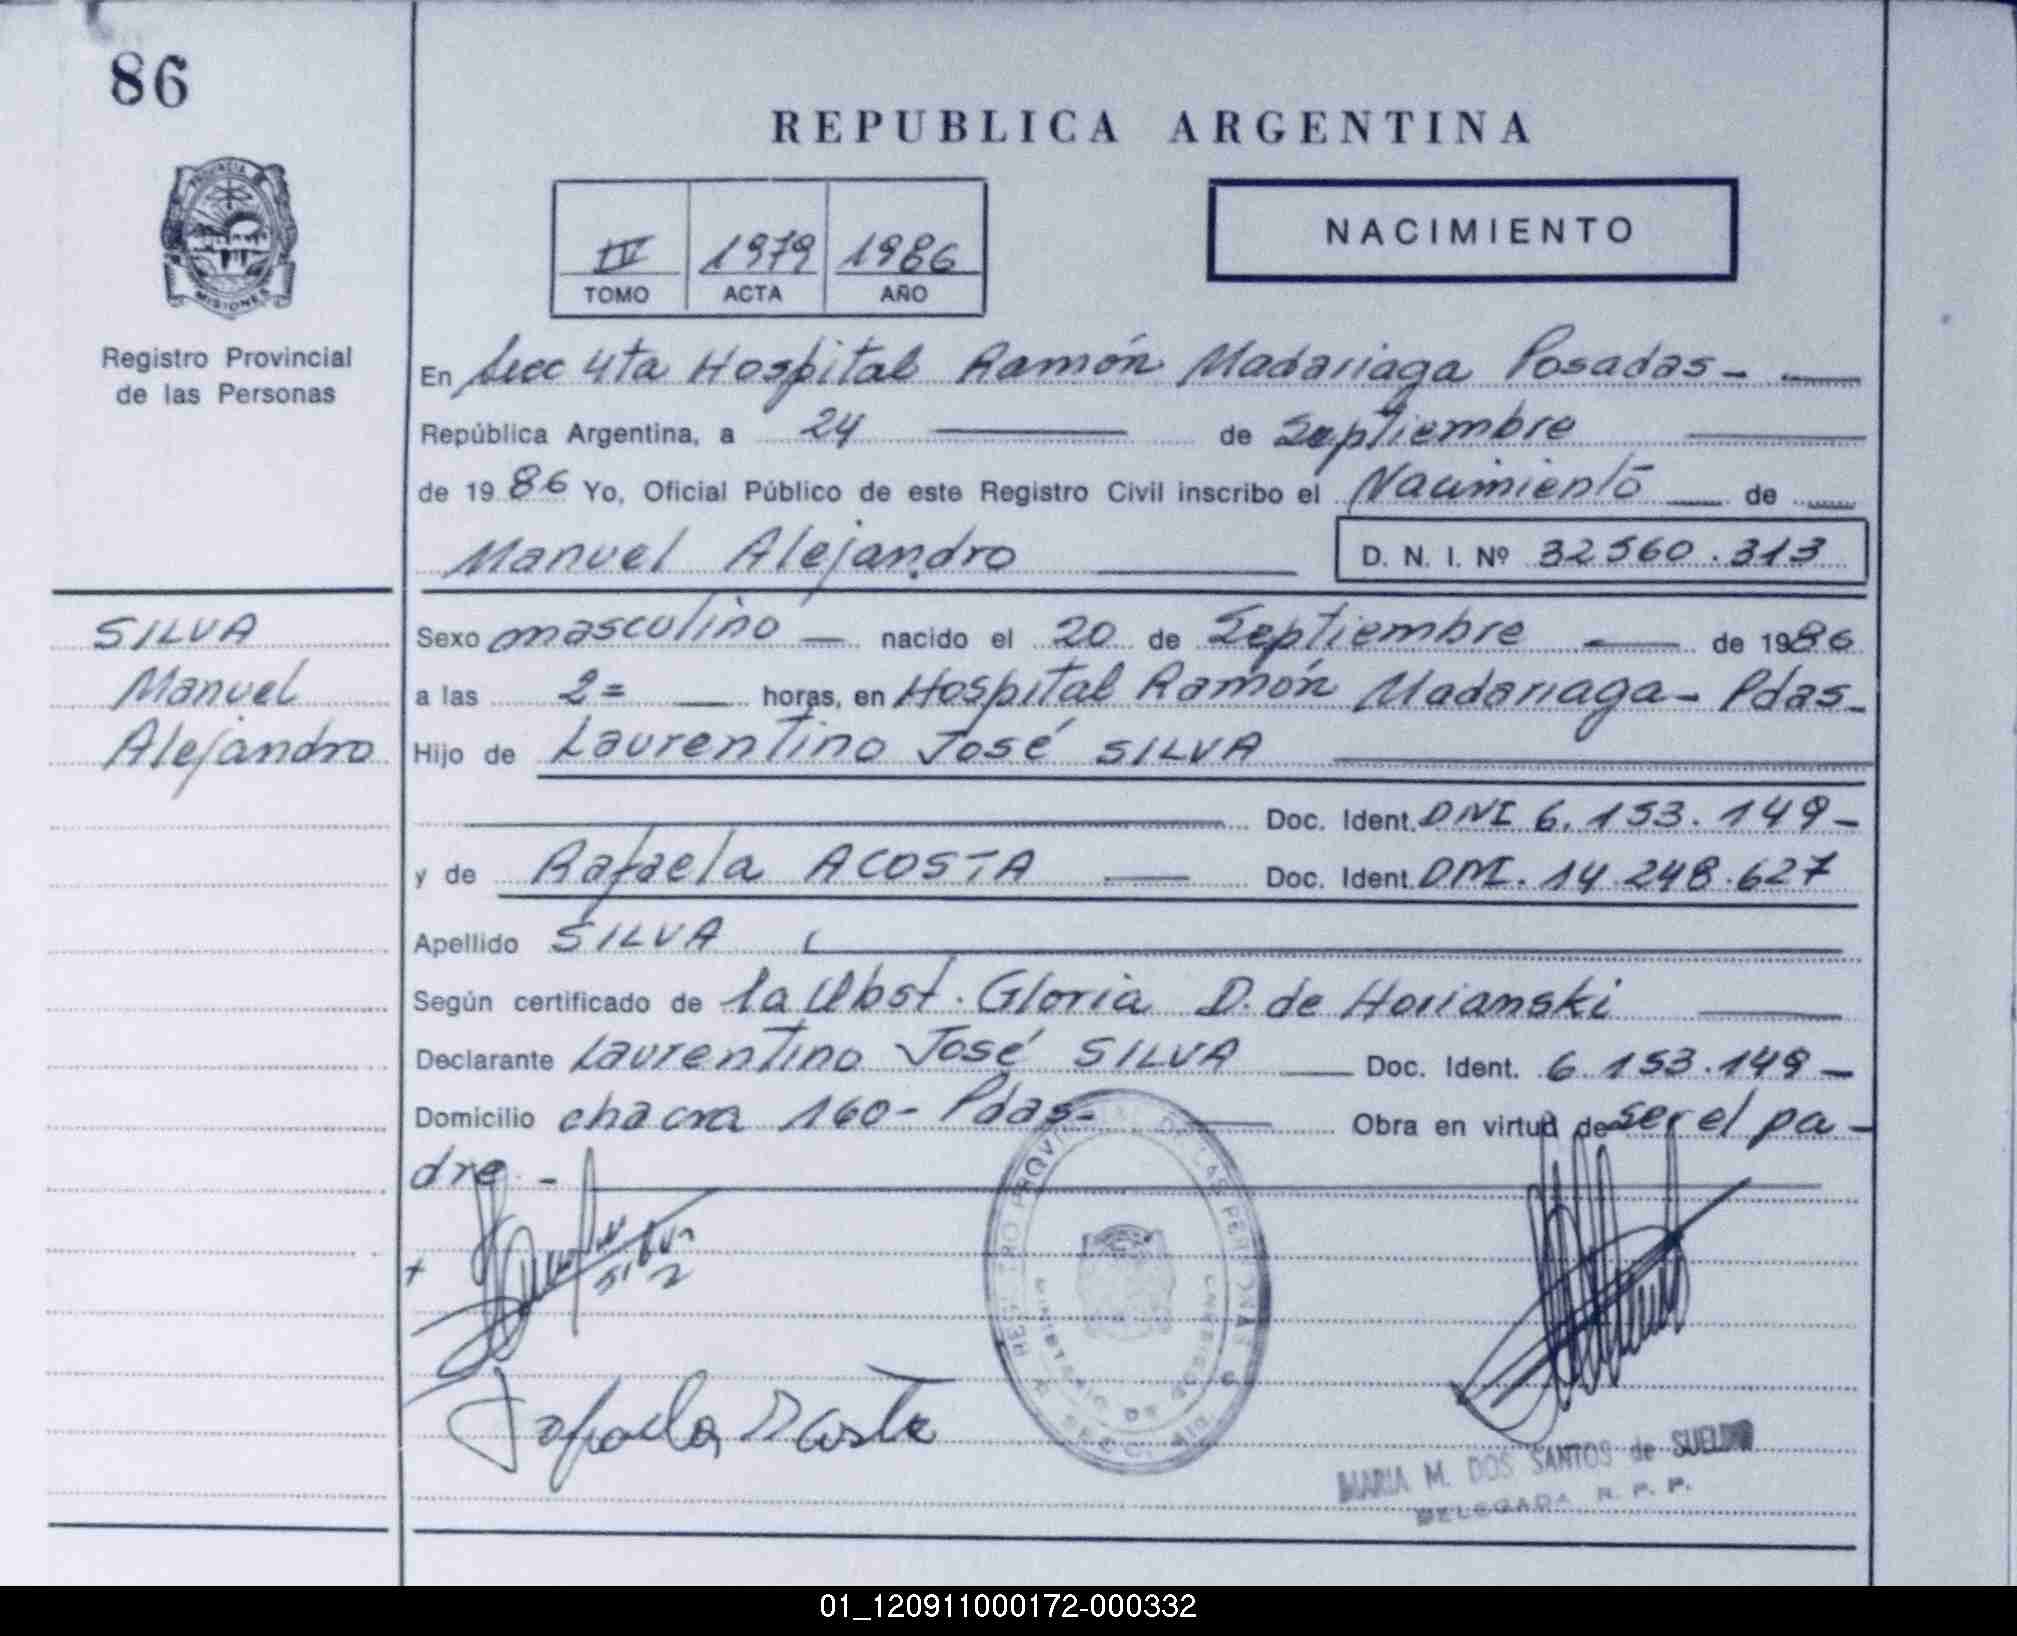 86
REPUBLICA ARGENTINA
PROVINCIA DE MISIONES
Registro Provincial
de las Personas
IV 1979 1986
TOMO ACTA AÑO
NACIMIENTO
En Secc 4ta Hospital Ramón Madariaga Posadas-
República Argentina, a 24 de Septiembre
de 1986 Yo, Oficial Público de este Registro Civil inscribo el Nacimiento de
Manuel Alejandro D. N. I. Nº 32560.313
SILVA
Manuel
Alejandro
Sexo masculino nacido el 20 de Septiembre de 1986
a las 2= horas, en Hospital Ramón Madariaga- Pdas-
Hijo de Laurentino José SILVA
Doc. Ident. DNI 6.153.149-
y de Rafaela ACOSTA Doc. Ident. DNI. 14.248.627
Apellido SILVA
Según certificado de la Obst. Gloria D. de Horianski
Declarante Laurentino José SILVA Doc. Ident. 6.153.149-
Domicilio chacra 160- Pdas- Obra en virtud de ser el pa-
dre.-
REGISTRO PROVINCIAL DE LAS PERSONAS
MINISTERIO DE
SECC.
Rafaela Acosta
MARIA M. DOS SANTOS de SUELDO
DELEGADA R. P. P.
01_120911000172-000332